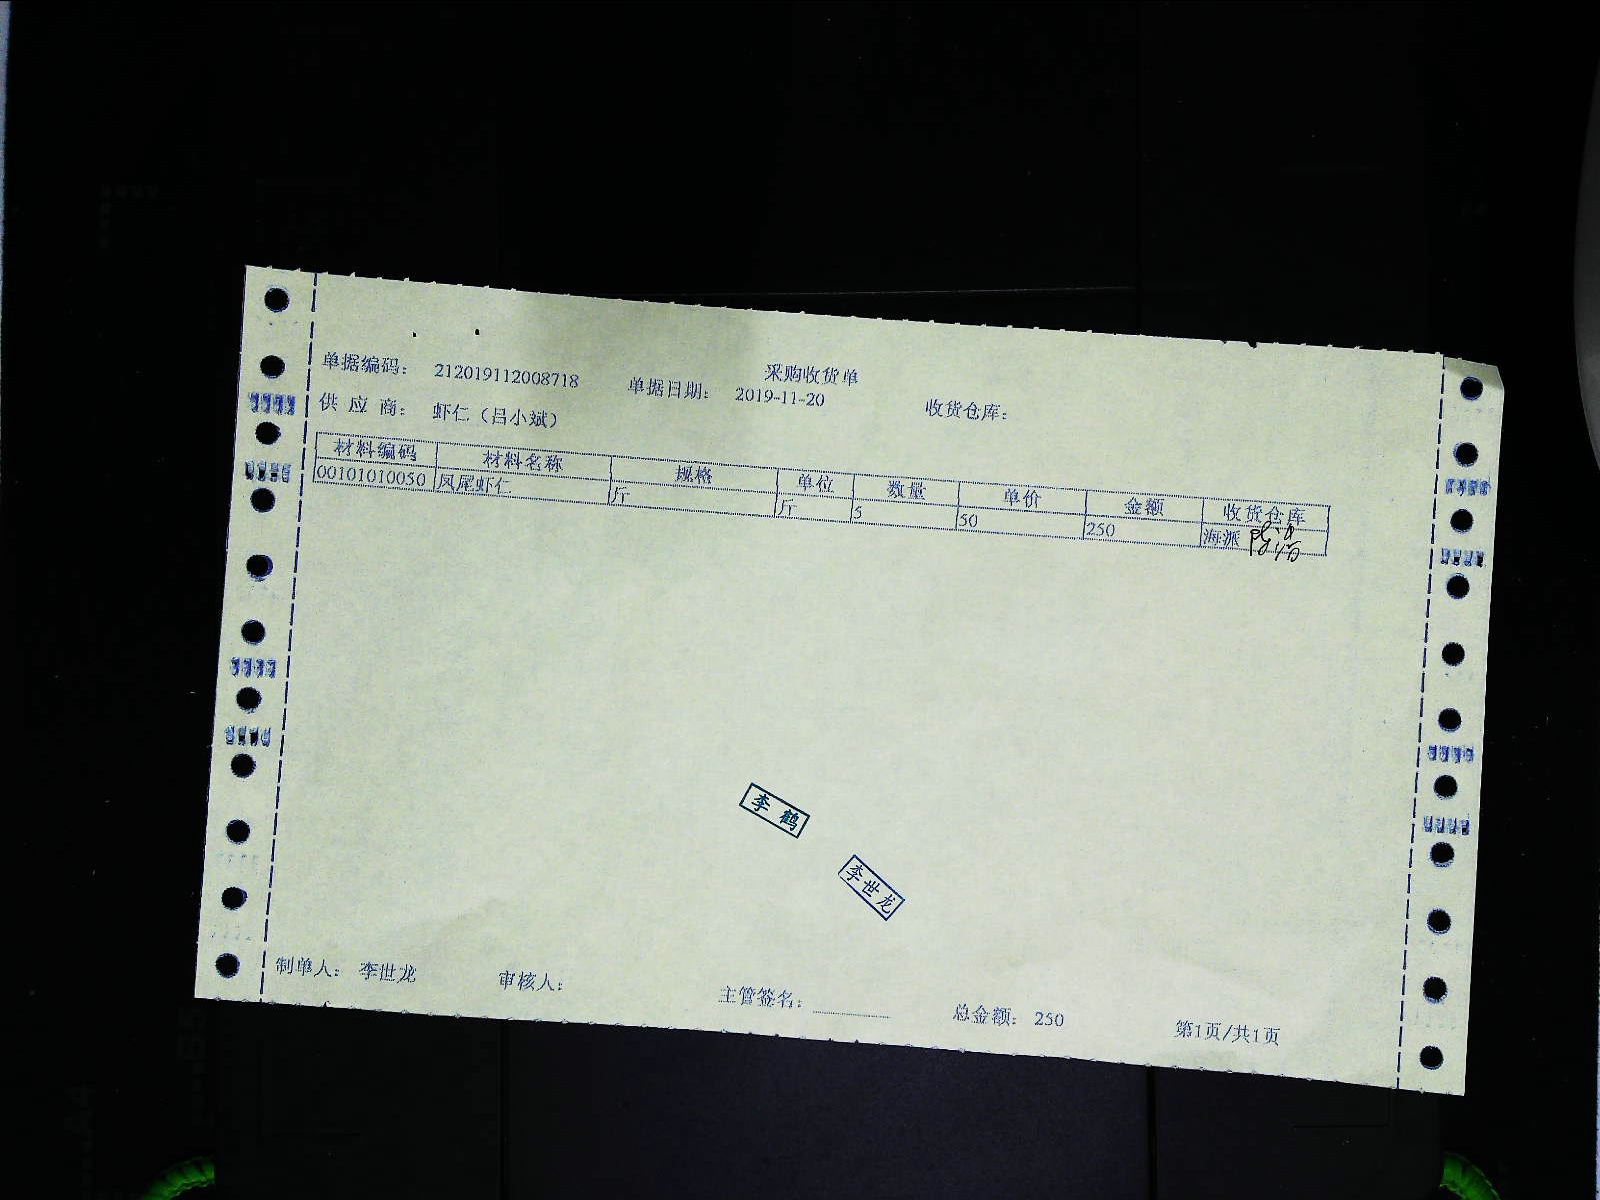 采购收货单
单据编码： 212019112008718 单据日期： 2019-11-20 收货仓库：
供 应 商： 虾仁（吕小斌）
材料编码 材料名称 规格 单位 数量 单价 金额 收货仓库
00101010050 凤尾虾仁 斤 斤 5 50 250 海派
李 鹤
李世龙
制单人： 李世龙 审核人： 主管签名： 总金额： 250 第1页/共1页